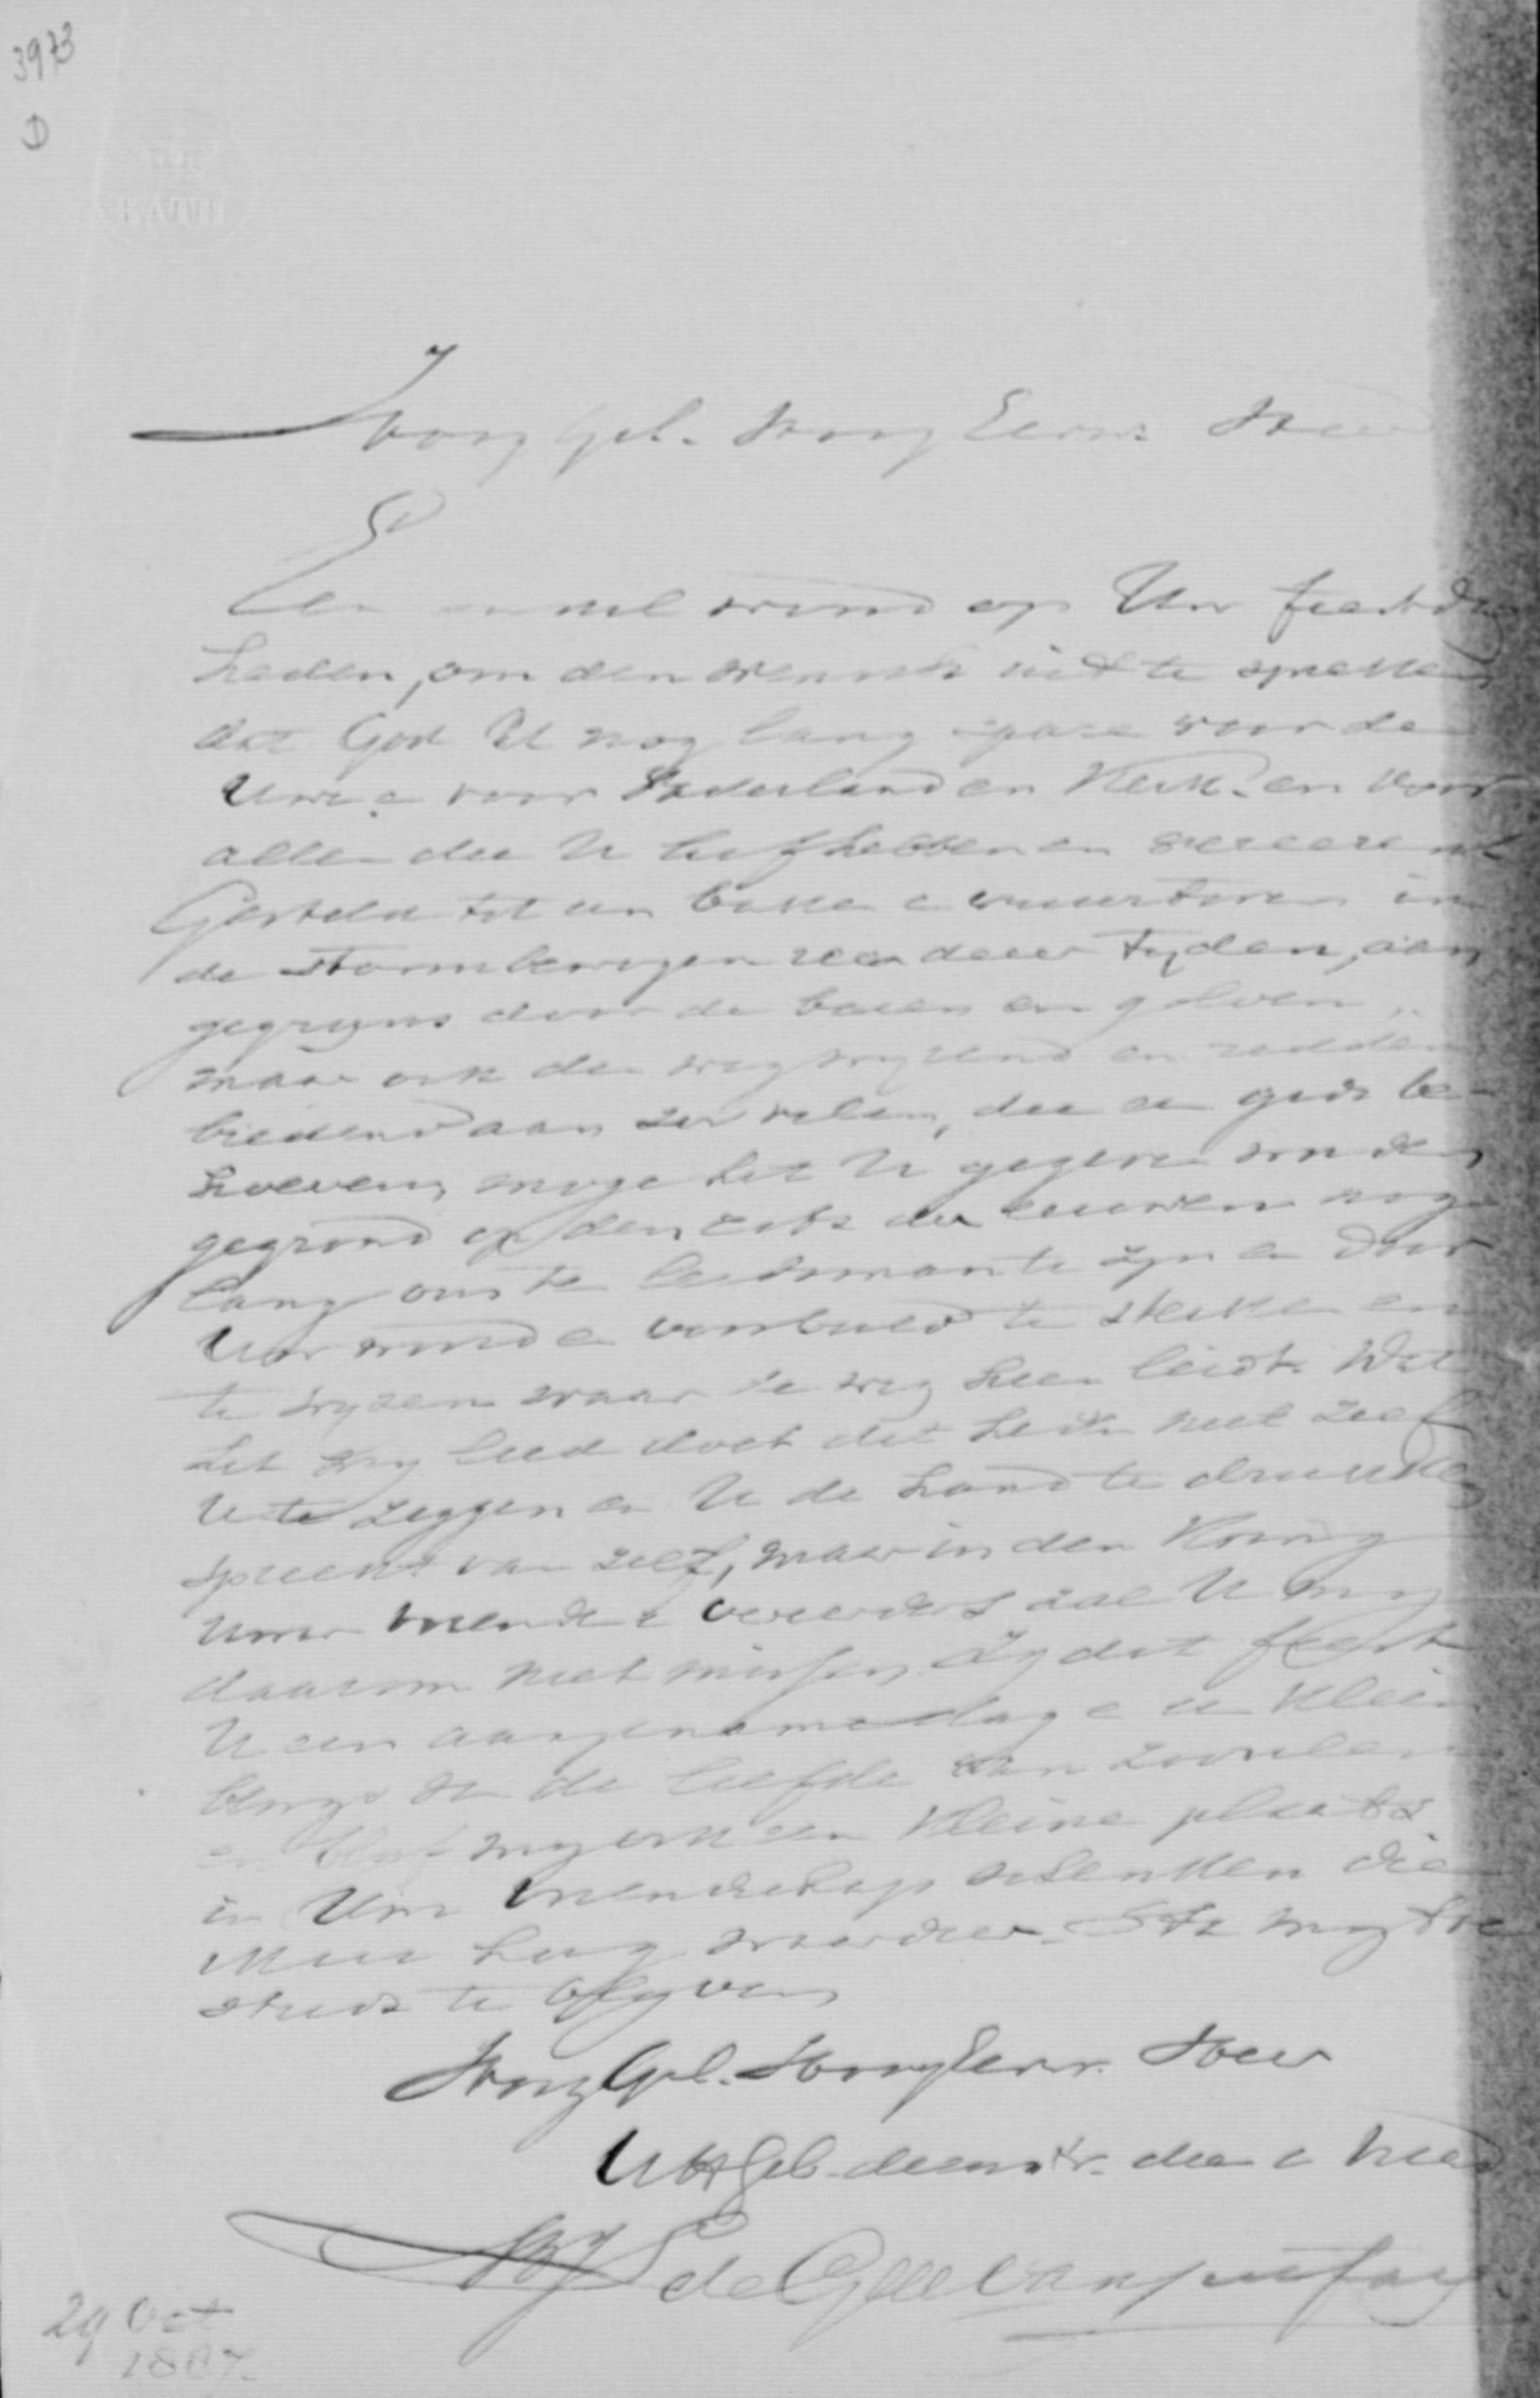 3973
D
HoogGel. HoogEerw. Heer
Een enkel woord op Uw feestdag
heden, om den wensch uit te spreken
dat God U nog lang spare voor de
Uwen voor Vaderland en Kerk en voor
allen die U liefhebben en vereeren
Gesteld tot een baken vuurtoren in
de stormbewogen zee dezer tyden, aan
gegrynsd door de baren en golven
maar ook den weg wyzend en redding
biedend aan zoo velen, die een gids be-
hoeven, moge het U gegeven worden
gegrond op den rots der eeuwen nog
lang ons te leidsman te zyn en door
Uw woord en voorbeeld te sterken en
te wyzen waar de weg heen leidt. Wat
het my leed doet dit heden niet zelf
U te zeggen en U de hand te drukken
spreekt van zelf, maar in den kring
Uwer vrienden vereerders zal U my
daarom niet missen. Zy dit feest
U een aangename dag een klein
blyk van de liefde van zoovelen
en blyf my ook een kleine plaats
in Uw vriendschap schenken die
Myn hoog waardeer. Sta my toe
steeds te blyven
HoogGel. HoogEerw. Heer
UHGeb. dienstv. dien. vriend
de Geer van Jutfaas
29 Oct
1887